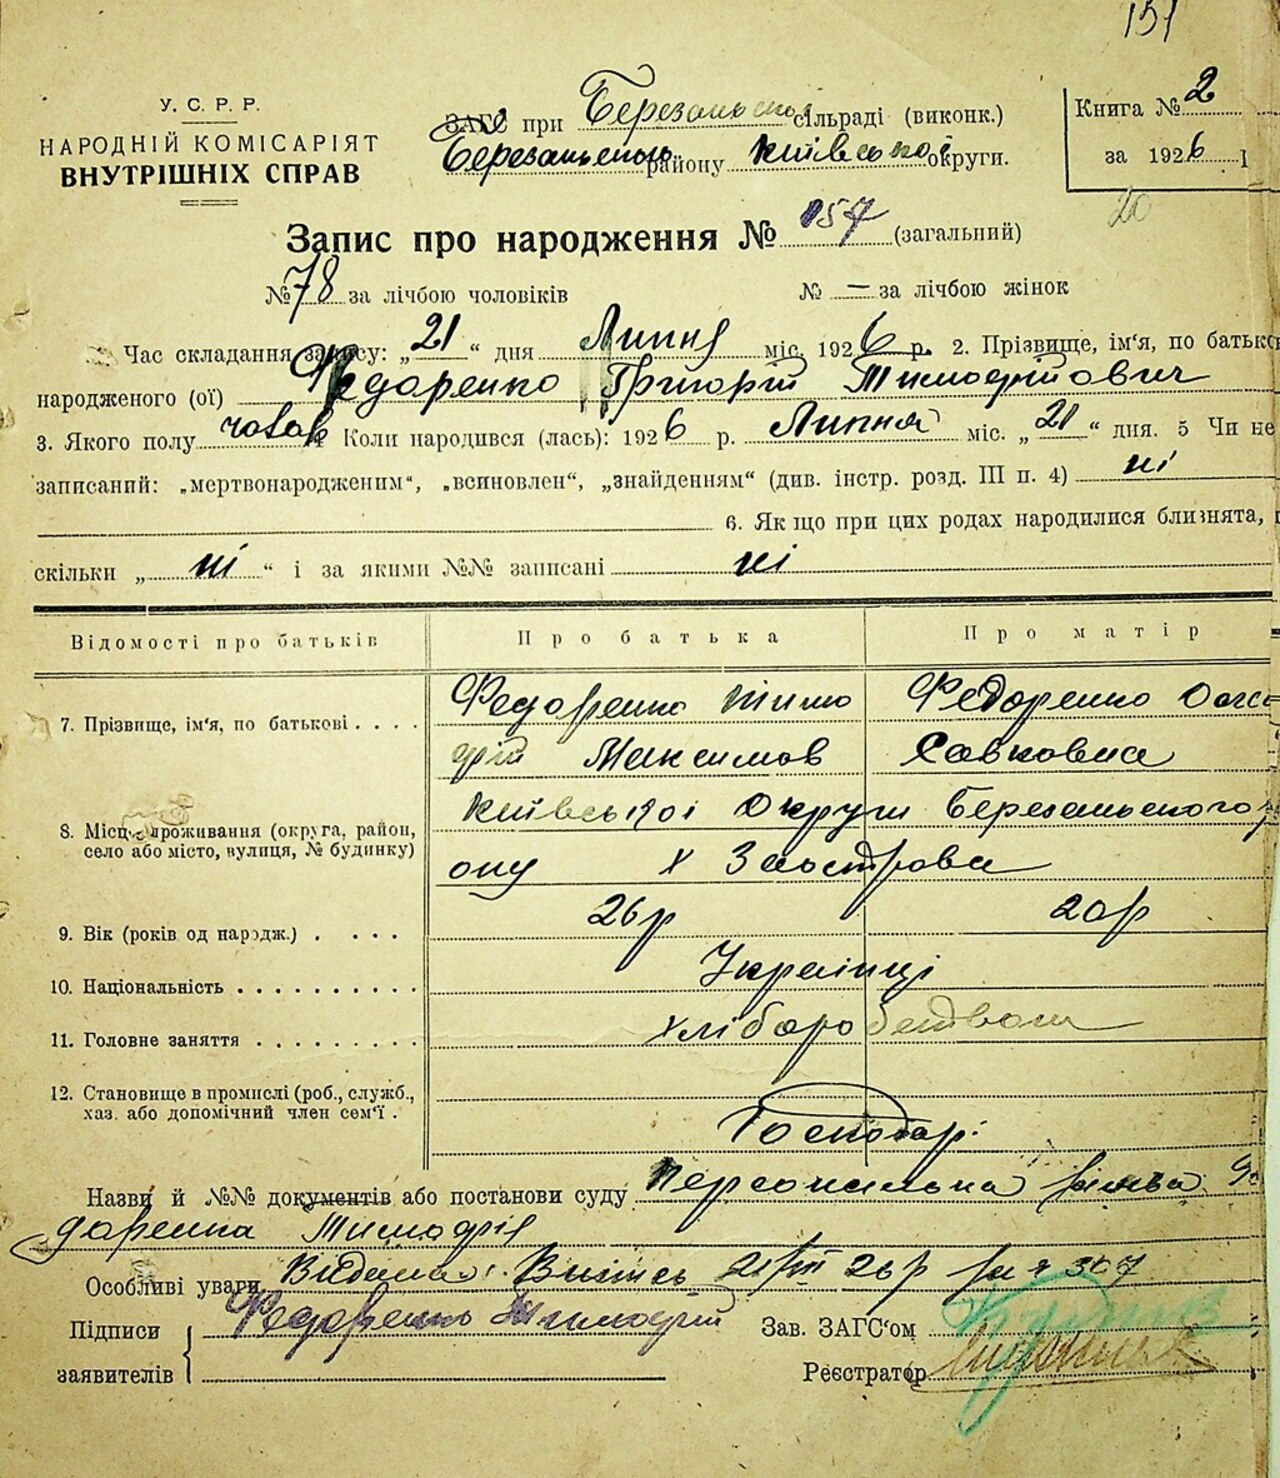 151
У. С. Р. Р.
НАРОДНІЙ КОМІСАРІЯТ
ВНУТРІШНІХ СПРАВ
ЗАГС при Березанській сільраді (виконк.)
Березанського району Київської округи.
Книга № 2
за 1926
20
Запис про народження № 157 (загальний)
№ 78 за лічбою чоловіків № — за лічбою жінок
Час складання запису: „21“ дня Липня міс. 1926 р. 2. Прізвище, ім‘я, по батьков
народженого (ої) Федоренко Григорій Тимофійович
3. Якого полу чолов 4 Коли народився (лась): 1926 р. Липня міс. „21“ дня. 5 Чи не
записаний: „мертвонародженим“, „всиновлен“, „знайденням“ (див. інстр. розд. III п. 4) ні
6. Якщо при цих родах народилися близнята,
скільки „ні“ і за якими №№ записані ні
Відомості про батьків Про батька Про матір
7. Прізвище, ім‘я, по батькові . . . . Федоренко Тимо Федоренко
фій Максимов Савковна
8. Місце проживання (округа, район, село або місто, вулиця, № будинку) Київської Округи Березанського
ону х
9. Вік (років од народж.) . . . . 26 р 20 р
10. Національність . . . . . . . . . . Українці
11. Головне заняття . . . . . . . . . Хліборобством
12. Становище в промислі (роб., служб.,
хаз. або допомічний член сем‘ї . Господарі
Назви й №№ документів або постанови суду Персональна заява Фе
доренка Тимофія
Особливі уваги Видана Випись 21/VII 26 р за № 307
Підписи Федоренко Тимофій Зав. ЗАГС‘ом
заявителів Реєстратор